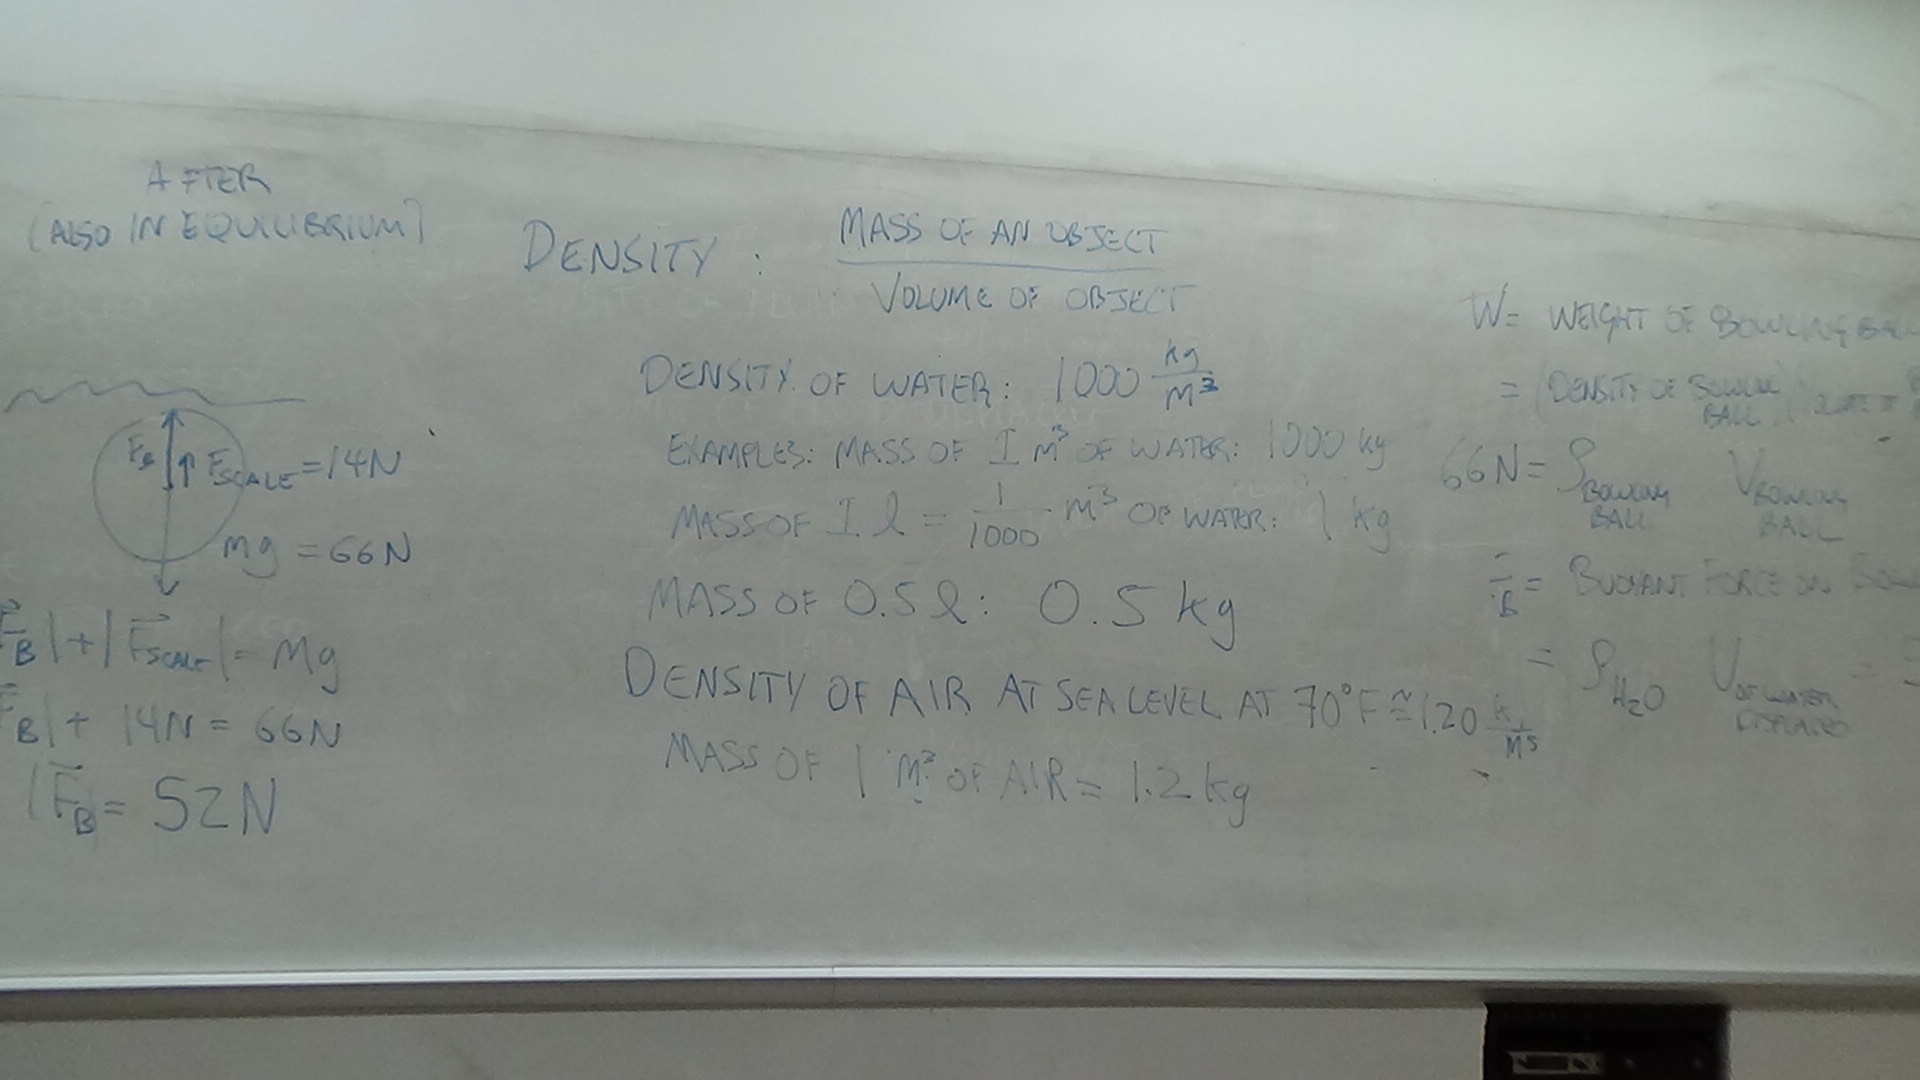 AFTER
(ALSO IN EQUILIBRIUM)
F_B F_SCALE = 14N
mg = 66N
F_B| + |F_SCALE| = mg
F_B| + 14N = 66N
|F_B| = 52N
DENSITY : MASS OF AN OBJECT
VOLUME OF OBJECT
DENSITY OF WATER: 1000 kg/m³
EXAMPLES: MASS OF 1 m³ OF WATER: 1000 kg
MASS OF 1 l = 1/1000 m³ OF WATER: 1 kg
MASS OF 0.5 l: 0.5 kg
DENSITY OF AIR AT SEA LEVEL AT 70°F ≅ 1.20 k/m³
MASS OF 1 m³ OF AIR = 1.2 kg
W = WEIGHT OF BOWLING BALL
= (DENSITY OF BOWLING BALL)
66N = ρ BOWLING BALL V BOWLING BALL
B = BUOYANT FORCE ON
= ρ H₂O V OF WATER DISPLACED =